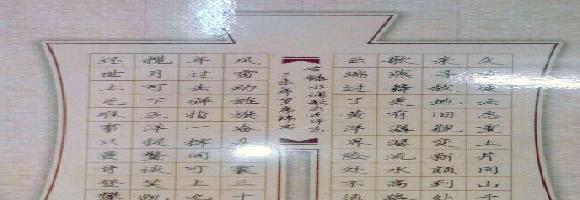 久有凌云志重上井冈山千
来寻故地旧貌变新颜到处
歌燕舞更有潺潺流水高路
云端过了黄洋界险处不须
水调歌头
风雷动旌旗奋是人寰三十
年过去弹指一挥间可上九
揽月可下五洋捉鳖谈笑凯
还世上无难事只要肯登攀